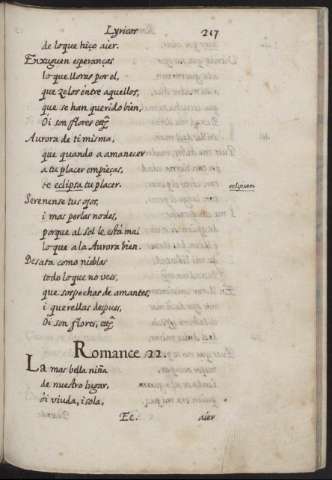 Lyricos 217
de lo que hiço aier.
Enxuguen esperanças
lo que lloras por el,
que zelos entre aquellos,
que se han querido bien,
Oi son flores etc.
Aurora de ti misma,
que quando a amanecer
a tu placer empieças,
se eclipsa tu placer. eclipsan
Serenense tus ojos,
i mas perlas no des,
porque al Sol le està mal
lo que a la Aurora bien.
Desata como nieblas
todo lo que no ves,
que sospechas de amantes,
i querellas despues,
Oi son flores, etc.
Romance 22.
La mas bella niña
de nuestro lugar,
òi viuda, i sola,
Ee. aier